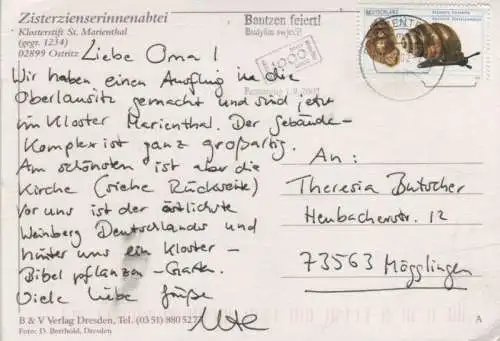 Zisterzienserinnenabtei
Klosterstift St. Marienthal
(gegr. 1234)
02899 Ostritz
Bautzen feiert!
Budyšin swjeći!
1000
Bautzen 1.9.2002
DEUTSCHLAND
Liebe Oma!
Wir haben einen Ausflug in die
Oberlausitz gemacht und sind jetzt
im Kloster Marienthal. Der Gebäude-
Komplex ist ganz großartig.
Am schönsten ist aber die
Kirche (siehe Rückseite)
Vor uns ist der östlichste
Weinberg Deutschlands und
hinter uns ein Kloster-
Bibelpflanzen-Garten.
Viele liebe Grüße
Ute
An:
Theresia Butscher
Heubacherstr. 12
73563 Mögglingen
B & V Verlag Dresden, Tel. (03 51) 880 52
Foto: D. Berthold, Dresden
A